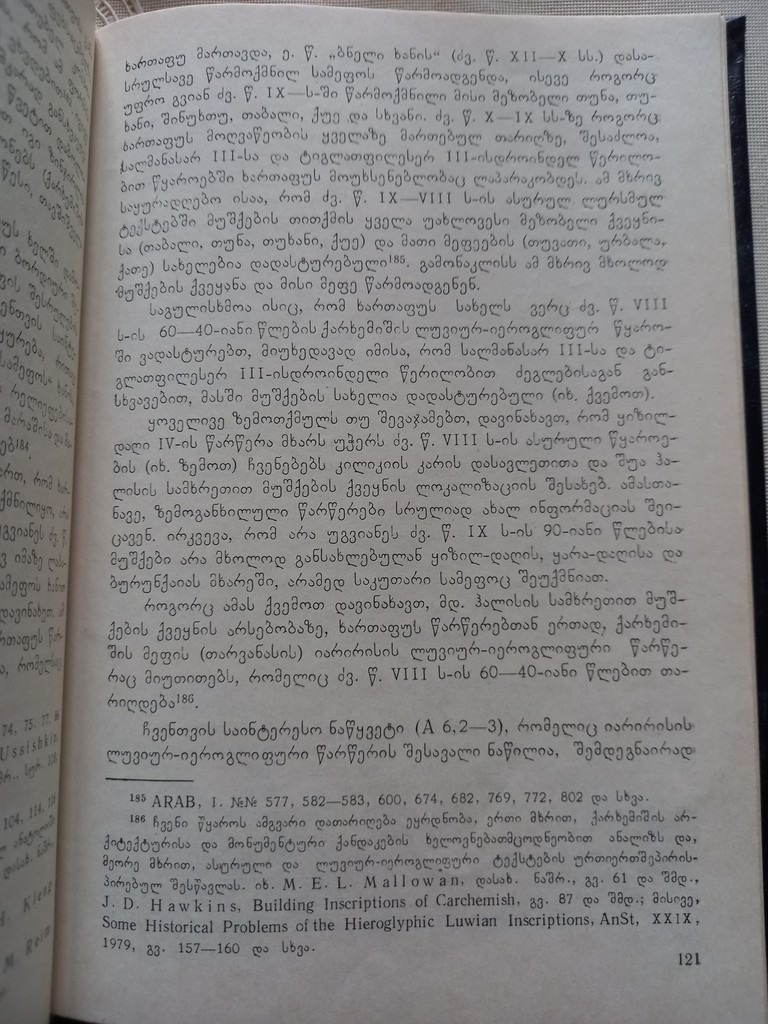 ხართაფუ მართავდა, ე. წ. „ბნელი ხანის“ (ძვ. წ. XII—X სს.) დასა-
სრულსავე წარმოქმნილ სამეფოს წარმოადგენდა, ისევე როგორც
უფრო გვიან ძვ. წ. IX—ს-ში წარმოქმნილი მისი მეზობელი თუნა, თუ-
ხანი, შინუხთუ, თაბალი, ქუე და სხვანი. ძვ. წ. X—IX სს-ზე როგორც
ხართაფუს მოღვაწეობის ყველაზე მართებულ თარიღზე, შესაძლოა,
სალმანასარ III-სა და ტიგლათფილესერ III-ისდროინდელ წერილო-
ბით წყაროებში ხართაფუს მოუხსენებლობაც ლაპარაკობდეს. ამ მხრივ
საყურადღებო ისაა, რომ ძვ. წ. IX—VIII ს-ის ასურულ ლურსმულ
ტექსტებში მუშქების თითქმის ყველა უახლოვესი მეზობელი ქვეყნი-
სა (თაბალი, თუნა, თუხანი, ქუე) და მათი მეფეების (თუვათი, ურბალა,
ქათე) სახელებია დადასტურებული¹⁸⁵. გამონაკლისს ამ მხრივ მხოლოდ
მუშქების ქვეყანა და მისი მეფე წარმოადგენენ.
საგულისხმოა ისიც, რომ ხართაფუს სახელს ვერც ძვ. წ. VIII
ს-ის 60—40-იანი წლების ქარხემიშის ლუვიურ-იეროგლიფურ წყარო-
ში ვადასტურებთ, მიუხედავად იმისა, რომ სალმანასარ III-სა და ტი-
გლათფილესერ III-ისდროინდელი წერილობით ძეგლებისაგან გან-
სხვავებით, მასში მუშქების სახელია დადასტურებული (იხ. ქვემოთ).
ყოველივე ზემოთქმულს თუ შევაჯამებთ, დავინახავთ, რომ ყიზილ-
დაღი IV-ის წარწერა მხარს უჭერს ძვ. წ. VIII ს-ის ასურული წყაროე-
ბის (იხ. ზემოთ) ჩვენებებს კილიკიის კარის დასავლეთითა და შუა ჰა-
ლისის სამხრეთით მუშქების ქვეყნის ლოკალიზაციის შესახებ. ამასთა-
ნავე, ზემოგანხილული წარწერები სრულიად ახალ ინფორმაციას შეი-
ცავენ. ირკვევა, რომ არა უგვიანეს ძვ. წ. IX ს-ის 90-იანი წლებისა
მუშქები არა მხოლოდ განსახლებულან ყიზილ-დაღის, ყარა-დაღისა და
ბურუნქაიას მხარეში, არამედ საკუთარი სამეფოც შეუქმნიათ.
როგორც ამას ქვემოთ დავინახავთ, მდ. ჰალისის სამხრეთით მუშ-
ქების ქვეყნის არსებობაზე, ხართაფუს წარწერებთან ერთად, ქარხემი-
შის მეფის (თარვანასის) იარირისის ლუვიურ-იეროგლიფური წარწე-
რაც მიუთითებს, რომელიც ძვ. წ. VIII ს-ის 60—40-იანი წლებით თა-
რიღდება¹⁸⁶.
ჩვენთვის საინტერესო ნაწყვეტი (A 6,2—3), რომელიც იარირისის
ლუვიურ-იეროგლიფური წარწერის შესავალი ნაწილია, შემდეგნაირად
¹⁸⁵ ARAB, I. №№ 577, 582—583, 600, 674, 682, 769, 772, 802 და სხვა.
¹⁸⁶ ჩვენი წყაროს ამგვარი დათარიღება ეყრდნობა, ერთი მხრით, ქარხემიშის არ-
ქიტექტურისა და მონუმენტური ქანდაკების ხელოვნებათმცოდნეობით ანალიზს და,
მეორე მხრით, ასურული და ლუვიურ-იეროგლიფური ტექსტების ურთიერთშეპირის-
პირებულ შესწავლას. იხ. M. E. L. Mallowan, დასახ. ნაშრ., გვ. 61 და შმდ.,
J. D. Hawkins, Building Inscriptions of Carchemish, გვ. 87 და შმდ.; მისივე,
Some Historical Problems of the Hieroglyphic Luwian Inscriptions, AnSt, XXIX,
1979, გვ. 157—160 და სხვა.
121